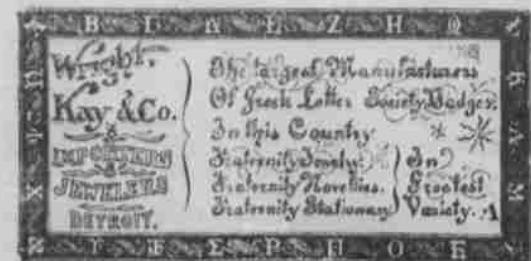 Β Γ Δ Ε Ζ Η Θ
Wright,
Kay & Co.
IMPORTERS
&
JEWELERS
DETROIT.
The largest Manufacturers
Of Greek Letter Society Badges.
In this Country.
Fraternity Jewelry.
Fraternity Novelties.
Fraternity Stationary
In
Greatest
Variety.
Σ Ρ Π Ο Ξ